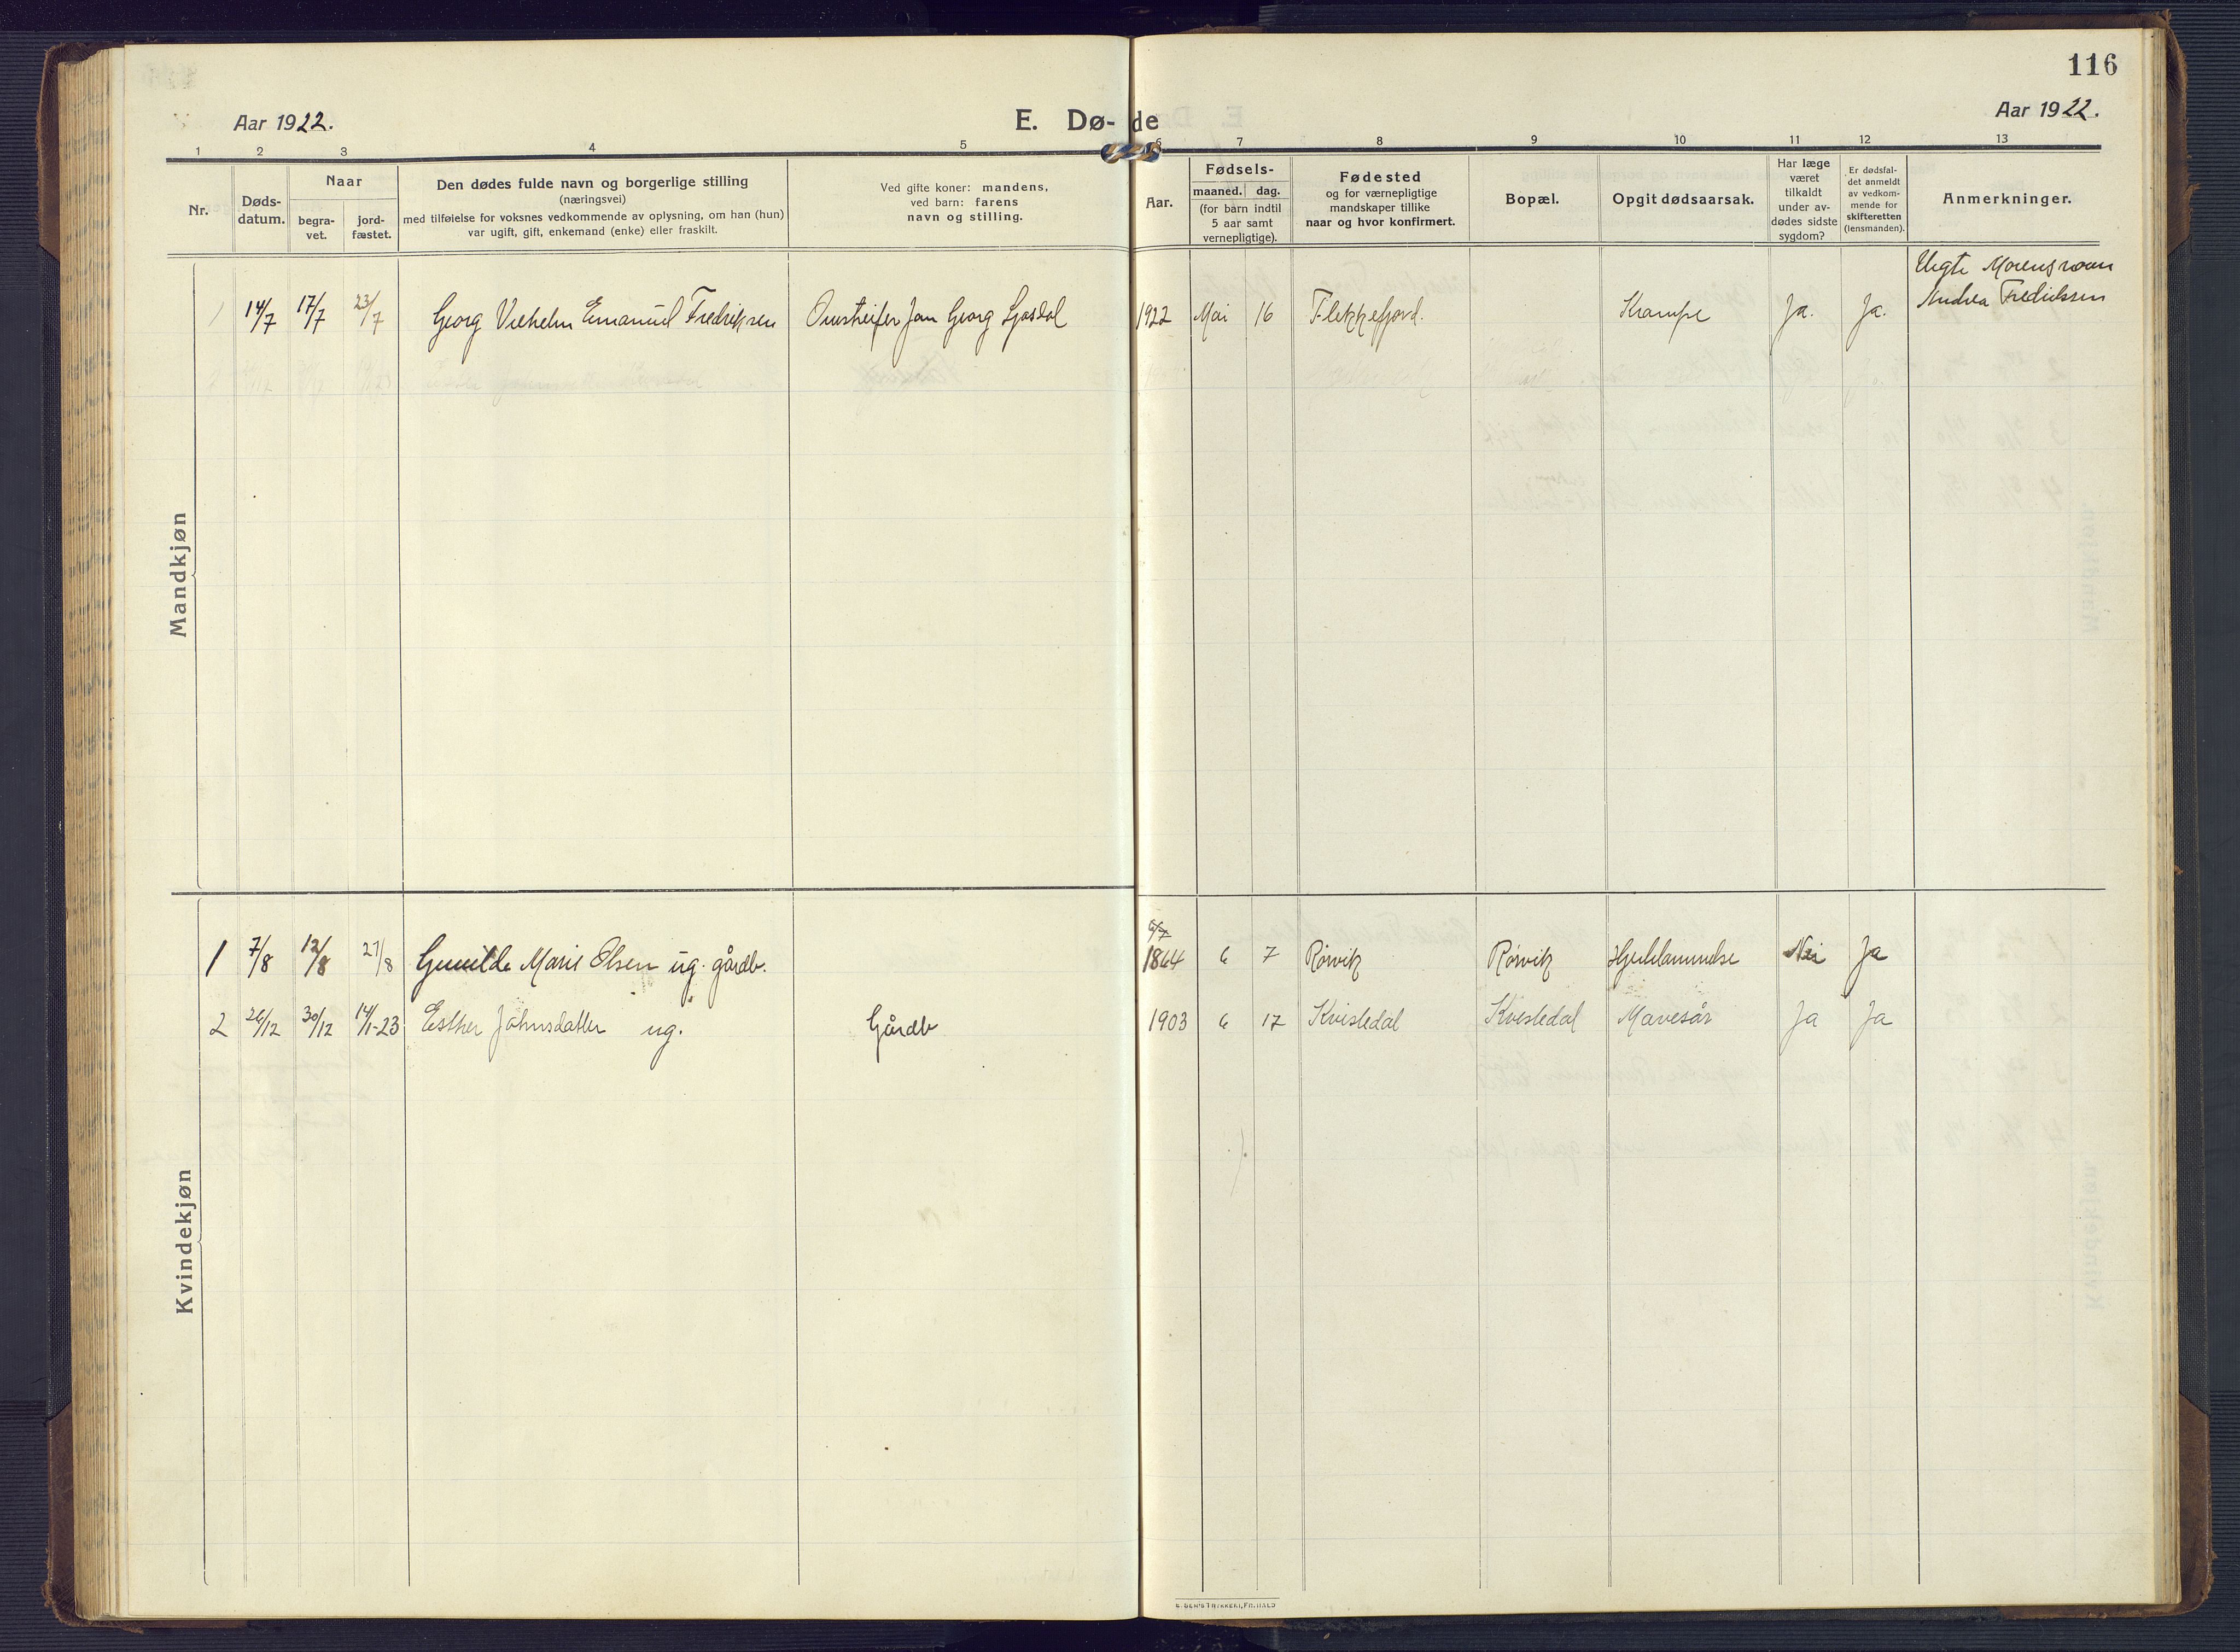 116
Aar 1922.
E. Dø- de
Aar 1922.
1 2 3 4 5 6 7 8 9 10 11 12 13
Nr.
Døds-
datum.
Naar
begra-
vet.
jord-
fæstet.
Den dødes fulde navn og borgerlige stilling
(næringsvei)
med tilføielse for voksnes vedkommende av oplysning, om han (hun)
var ugift, gift, enkemand (enke) eller fraskilt.
Ved gifte koner: mandens,
ved barn: farens
navn og stilling.
Aar.
Fødsels-
maaned. dag.
(for barn indtil
5 aar samt
vernepligtige).
Fødested
og for værnepligtige
mandskaper tillike
naar og hvor konfirmert.
Bopæl.
Opgit dødsaarsak.
Har læge
været
tilkaldt
under av-
dødes sidste
sygdom?
Er dødsfal-
det anmeldt
av vedkom-
mende for
skifteretten
(lensmanden).
Anmerkninger.
Mandkjøn
Uegte Morens navn
Andrea Fredriksen
1 14/7 17/7 23/7 Georg Vilhelm Emanuel Fredriksen Jan Georg 1922 Mai 16 Flekkefjord. Krampe Ja. Ja.
Kvindekjøn
1 7/8 12/8 27/8 Gunilde Marie Olsen ug. gårdb. 1864 6 7 Rørvik Rørvik Nei Ja
2 26/12 30/12 14/1-23 Esther Johnsdatter ug. Gårdb 1903 6 17 Kvisledal Kvisledal Mavesår Ja Ja